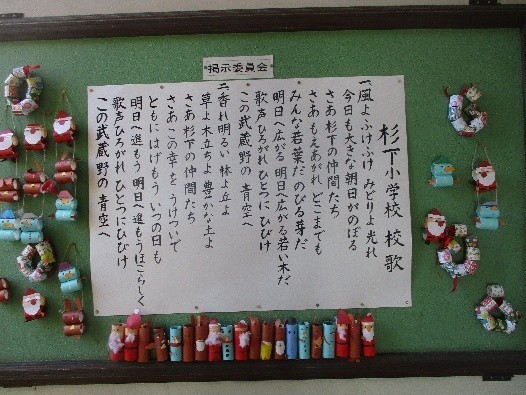 掲示委員会
杉下小学校 校歌
一、風よふけふけ みどりよ光れ
今日も大きな朝日がのぼる
さあ杉下の仲間たち
さあ もえあがれ どこまでも
みんな若葉だ のびる芽だ
明日へ広がる 明日へ広がる 若い木だ
歌声ひろがれ ひとつにひびけ
この武蔵野の 青空へ
二、香れ明るい 林よ丘よ
草よ木立ちよ 豊かな土よ
さあ杉下の仲間たち
さあこの幸を うけついで
ともにはげもう いつの日も
明日へ進もう 明日へ進もう ほこらしく
歌声ひろがれ ひとつにひびけ
この武蔵野の 青空へ